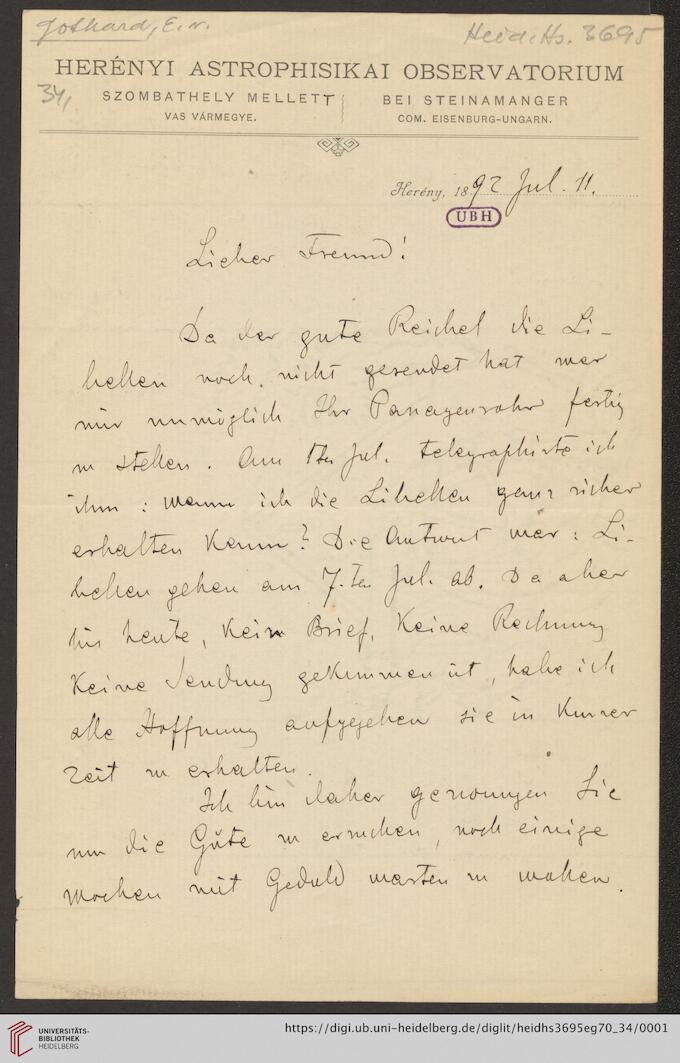 Gothard, E. v.
Heid. Hs. 3695
HERÉNYI ASTROPHISIKAI OBSERVATORIUM
34,
SZOMBATHELY MELLETT
BEI STEINAMANGER
VAS VÁRMEGYE.
COM. EISENBURG-UNGARN.
Herény, 1892 Jul. 11.
UBH
Lieber Freund!
Da der gute Reichel die Li-
bellen noch nicht gesendet hat war
mir unmöglich Ihr Passagenrohr fertig
zu stellen. Am 1ten Jul. telegraphirte ich
ihm: wann ich die Libellen ganz sicher
erhalten kann? Die Antwort war: Li-
bellen gehen am 7.ten Jul. ab. Da aber
bis heute, kein Brief, keine Rechnung
keine Sendung gekommen ist, habe ich
alle Hoffnung aufgegeben sie in kurzer
Zeit zu erhalten.
Ich bin daher gezwungen Sie
um die Güte zu ersuchen, noch einige
Wochen mit Geduld warten zu wollen.
UNIVERSITÄTS-
BIBLIOTHEK
HEIDELBERG
https://digi.ub.uni-heidelberg.de/diglit/heidhs3695eg70_34/0001